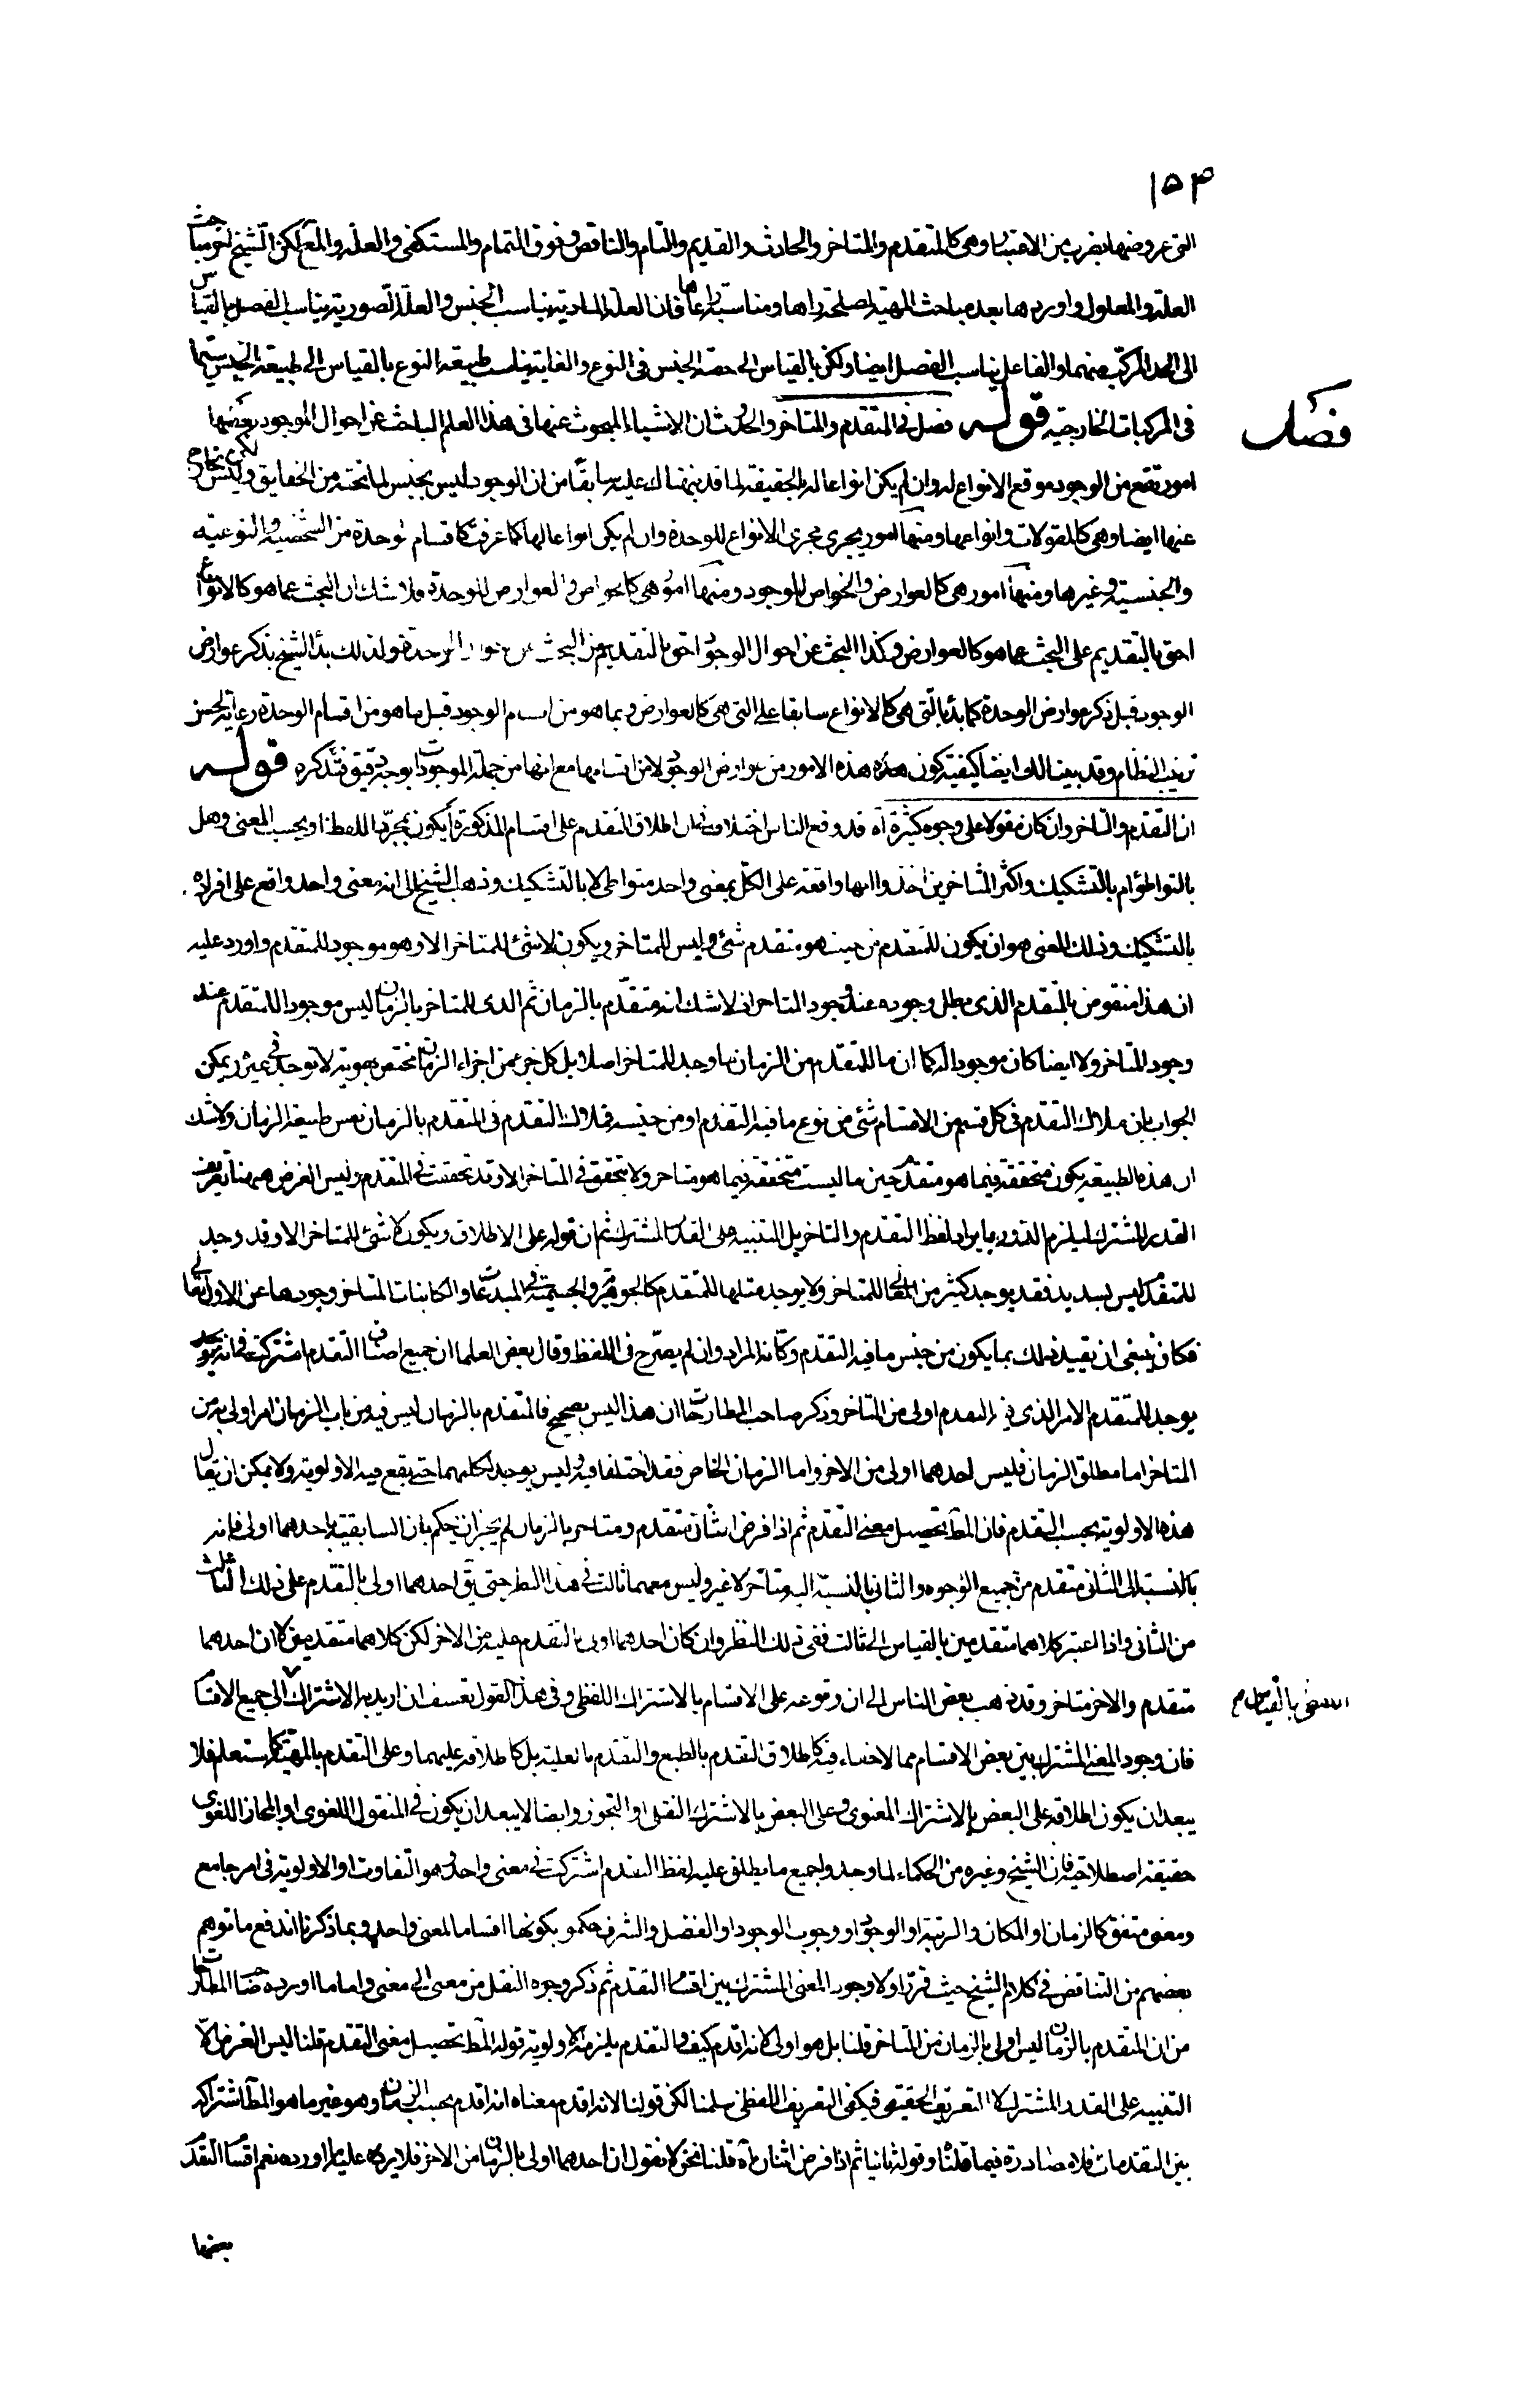 ١٥٣
التى عروضها بضرب من الاعتبار وهى كالمتقدم والمتاخر والحادث والقديم والتام والناقص وفوق التمام والمستكفى والعلة والمع لكن الشيخ اخر مباحث
العلة والمعلول واوردها بعد مباحث المهية لمصلحة راها ومناسبة راعاها فان العلة المادية يناسب الجنس والعلة الصورية يناسب الفصل بالقياس
الى الحد المركب منهما والفاعل يناسب الفصل ايضا ولكن بالقياس الى حصة الجنس فى النوع والغاية يناسب طبيعة النوع بالقياس الى طبيعة الجنس سيما
فى المركبات الخارجية قوله فصل فى المتقدم والمتاخر والحدوث ان الاشياء المبحوث عنها فى هذا العلم الباحث عن احوال الموجود بعضها
فصل
امور تقع من الوجود موقع الانواع له وان لم يكن انواعا له بالحقيقة لما قد نبهناك عليه سابقا من ان الوجود ليس بجنس لما تحته من الحقايق وليس بخارج
عنها ايضا وهى كالمقولات وانواعها ومنها امور يجرى مجرى الانواع للوحدة وان لم يكن انواعا لها كما عرفت كاقسام الوحدة من الشخصية والنوعية
والجنسية وغيرها ومنها امور هى كالعوارض والخواص للوجود ومنها امور هى كالخواص والعوارض للوحدة فلا شك ان البحث عما هو كالانواع
احق بالتقديم على البحث عما هو كالعوارض وكذا البحث عن احوال الوجود احق بالتقديم من البحث عن احوال الوحدة ولذلك بدأ الشيخ بذكر عوارض
الوجود قبل ذكر عوارض الوحدة كما بدأ بالتى هى كالانواع سابقا على التى هى كالعوارض وبما هو من اقسام الوجود قبل ما هو من اقسام الوحدة رعاية لحسن
ترتيب النظام وقد بينا لك ايضا كيفية كون هذه الامور من عوارض الوجود لا من اقسامها مع انها من جملة الموجودات بوجه دقيق فتذكره قوله
ان التقدم والتاخر وان كان مقولا على وجوه كثيرة آه قد وقع الناس اختلاف فى ان اطلاق التقدم على اقسام المذكورة أيكون بمجرد اللفظ او بحسب المعنى وهل
بالتواطؤ ام بالتشكيك واكثر المتاخرين اخذوا انها واقعة على الكل بمعنى واحد متواطى لا بالتشكيك وذهب الشيخ الى انه بمعنى واحد واقع على افراده
بالتشكيك وذلك المعنى هو ان يكون للمتقدم من حيث هو متقدم شئ وليس للمتاخر ويكون لا شئ للمتاخر الا وهو موجود للمتقدم واورد عليه
ان هذا منقوض بالمتقدم الذى يبطل وجوده عند وجود المتاخر اذ لا شك انه متقدم بالزمان ثم الذى للمتاخر بالزمان ليس موجودا للمتقدم عند
وجود المتاخر ولا ايضا كان موجودا له كما ان ما للمتقدم من الزمان ما وجد للمتاخر اصلا بل كل جزء من اجزاء الزمان مختص بهوية لا توجد فى غيره ويمكن
الجواب بان ملاك التقدم فى كل قسم من الاقسام شئ من نوع ما فيه التقدم او من جنسه فملاك التقدم فى المتقدم بالزمان نفس طبيعة الزمان ولا شك
ان هذه الطبيعة يكون متحققة فيما هو متقدم حين ما ليست متحققة فيما هو متاخر ولا يتحقق فى المتاخر الا وقد تحققت فى المتقدم وليس الغرض ههنا تعريف
القدر المشترك ليلزم الدور بايراد لفظ التقدم والتاخر بل التنبيه على القدر المشترك ثم ان قوله على الاطلاق ويكون لا شئ للمتاخر الا وقد وجد
للمتقدم ليس بسديد فقد يوجد كثير من المعانى للمتاخر ولا يوجد مثلها للمتقدم كالجوهرية والجسمية فى المبدعات والكائنات المتاخر وجودها عن الاول تعالى
فكان ينبغى ان يقيد ذلك بما يكون من جنس ما فيه التقدم وكانه المراد وان لم يصرح فى اللفظ وقال بعض العلماء ان جميع اصناف التقدم اشتركت فى انه يوجد
يوجد للمتقدم الامر الذى فيه التقدم اولى من المتاخر وذكر صاحب المطارحات ان هذا ليس بصحيح فالمتقدم بالزمان ليس فيه من باب الزمان امر اولى به من
المتاخر اما مطلق الزمان فليس احدهما اولى من الاخر واما الزمان الخاص فقد اختلفا فيه وليس يوجد لكليهما حتى يقع فيه الاولوية ولا يمكن ان يقال
هذه الاولوية بحسب التقدم فان المط تحصيل معنى التقدم ثم اذا فرض اثنان متقدم ومتاخر بالزمان لم يجز ان يحكم بان السابقية باحدهما اولى فانه
بالنسبة الى الثانى متقدم من جميع الوجوه والثانى بالنسبة اليه متاخر لا غير وليس معهما ثالث فى هذا النظر حتى يق احدهما اولى بالتقدم على ذلك الثالث
من الثانى واذا اعتبر كلاهما متقدمين بالقياس الى ثالث ففى ذلك النظر وان كان احدهما اولى بالتقدم عليه من الاخر لكن كلاهما متقدمين لا ان احدهما
متقدم والاخر متاخر وقد ذهب بعض الناس الى ان وقوعه على الاقسام بالاشتراك اللفظى وفى هذا القول تعسف ان اريد به الاشتراك الى جميع الاقسام
اللفظى بالقياس م
فان وجود المعنى المشترك بين بعض الاقسام مما لا خفاء فيه كاطلاق التقدم بالطبع والتقدم بالعلية بل كاطلاقه عليهما وعلى التقدم بالمهية كما ستعلم فلا
يبعد ان يكون اطلاقه على البعض بالاشتراك المعنوى وعلى البعض بالاشتراك النقلى او التجوز وايضا لا يبعد ان يكون فى المنقول اللغوى او المجاز اللغوى
حقيقة اصطلاحية فان الشيخ وغيره من الحكماء لما وجدوا جميع ما يطلق عليه لفظ التقدم اشتركت فى معنى واحد وهو التفاوت او الاولوية فى امر جامع
ومعنى متفق كالزمان او المكان والرتبة او الوجود او وجوب الوجود او الفضل والشرف حكموا بكونها اقساما لمعنى واحد وبما ذكرنا اندفع ما توهم
بعضهم من التناقض فى كلام الشيخ حيث قرر اولا وجود المعنى المشترك بين اقسام التقدم ثم ذكر وجوه النقل من معنى الى معنى واما ما اورده صاحب المطارحات
من ان المتقدم بالزمان ليس اولى بالزمان من المتاخر قلنا بل هو اولى لانه اقدم كيف والتقدم يلزمه الاولوية قوله المط تحصيل معنى التقدم قلنا ليس الغرض الا
التنبيه على القدر المشترك لا التعريف الحقيقى فيكفى التعريف اللفظى سلمنا لكن قولنا لانه اقدم معناه انه اقدم بحسب الزمان وهو غير ما هو المط اشتراكه
بين التقدمات فلا مصادرة فيما قلنا وقوله ثانيا ثم اذا فرض اثنان آه قلنا نحن لا نقول ان احدهما اولى بالزمان من الاخر فلا يرد علينا ما اورده نعم اقسام التقدم
بعضها